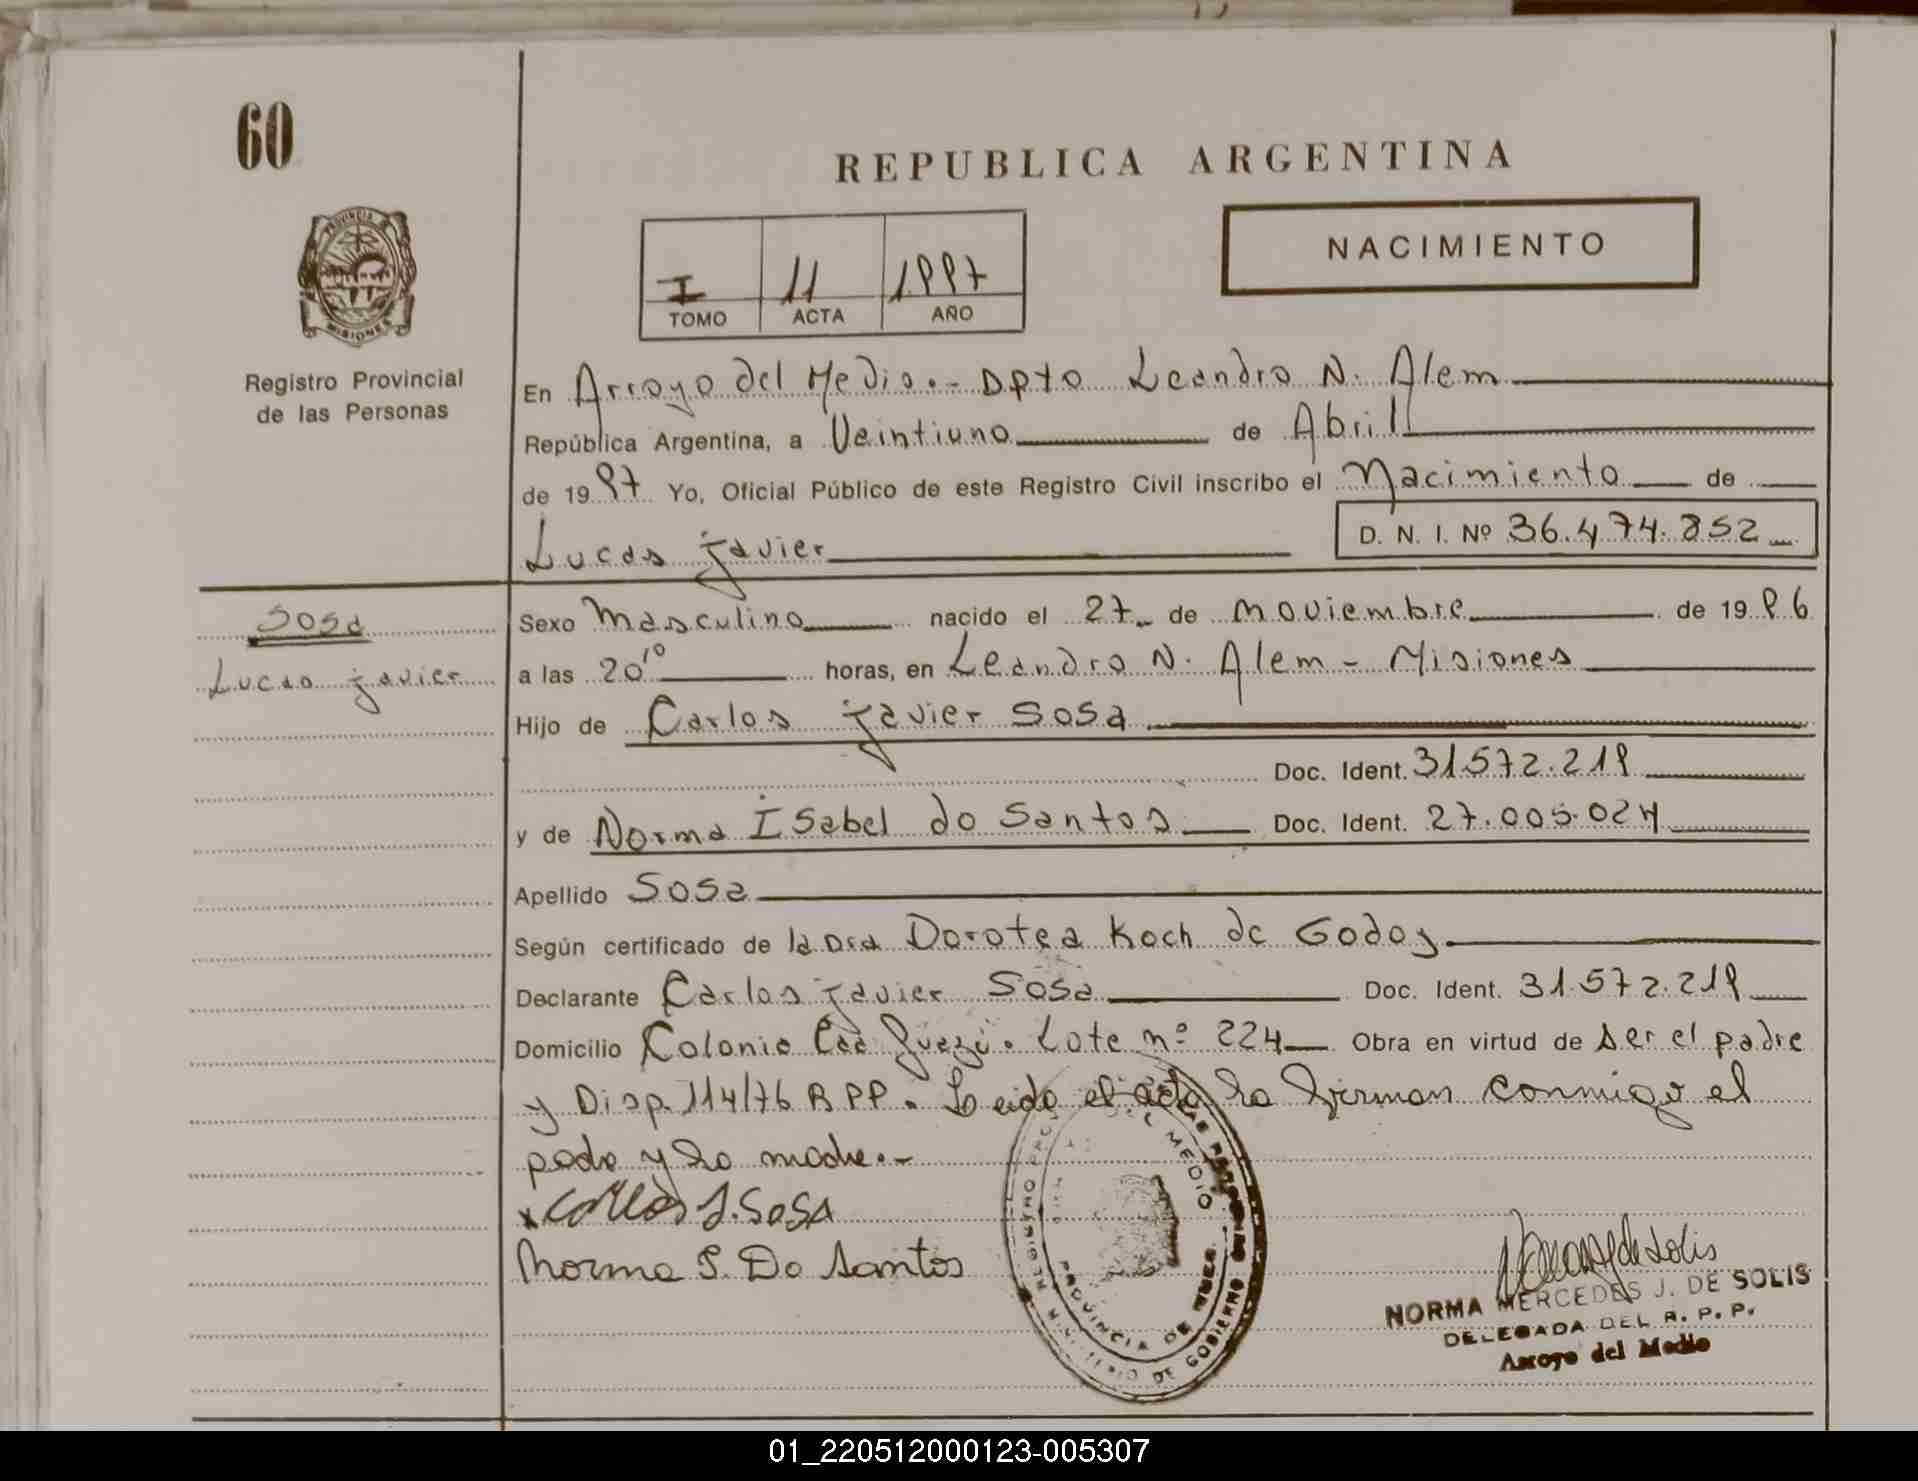 60
REPUBLICA ARGENTINA
PROVINCIA DE MISIONES
I 11 1997
TOMO ACTA AÑO
NACIMIENTO
Registro Provincial
de las Personas
En Arroyo del Medio.- Dpto Leandro N. Alem
República Argentina, a Veintiuno de Abril
de 1997 Yo, Oficial Público de este Registro Civil inscribo el Nacimiento de
Lucas Javier D. N. I. Nº 36.474.852
Sosa
Lucas Javier
Sexo Masculino nacido el 27 de Noviembre de 1996
a las 20¹⁰ horas, en Leandro N. Alem - Misiones
Hijo de Carlos Javier Sosa
Doc. Ident. 31.572.219
y de Norma Isabel do Santos Doc. Ident. 27.005.024
Apellido Sosa
Según certificado de la Dra Dorotea Koch de Godoy
Declarante Carlos Javier Sosa Doc. Ident. 31.572.219
Domicilio Colonia Caa Lote nº 224 Obra en virtud de ser el padre
y Disp. 114/76 RPP. Leida el acta la firman conmigo el
padre y la madre.-
x Carlos J. Sosa
Norma I. Do Santos
NORMA MERCEDES J. DE SOLIS
DELEGADA DEL R. P. P.
Arroyo del Medio
MEDIO
PROVINCIA DE
DE GOBIERNO
01_220512000123-005307